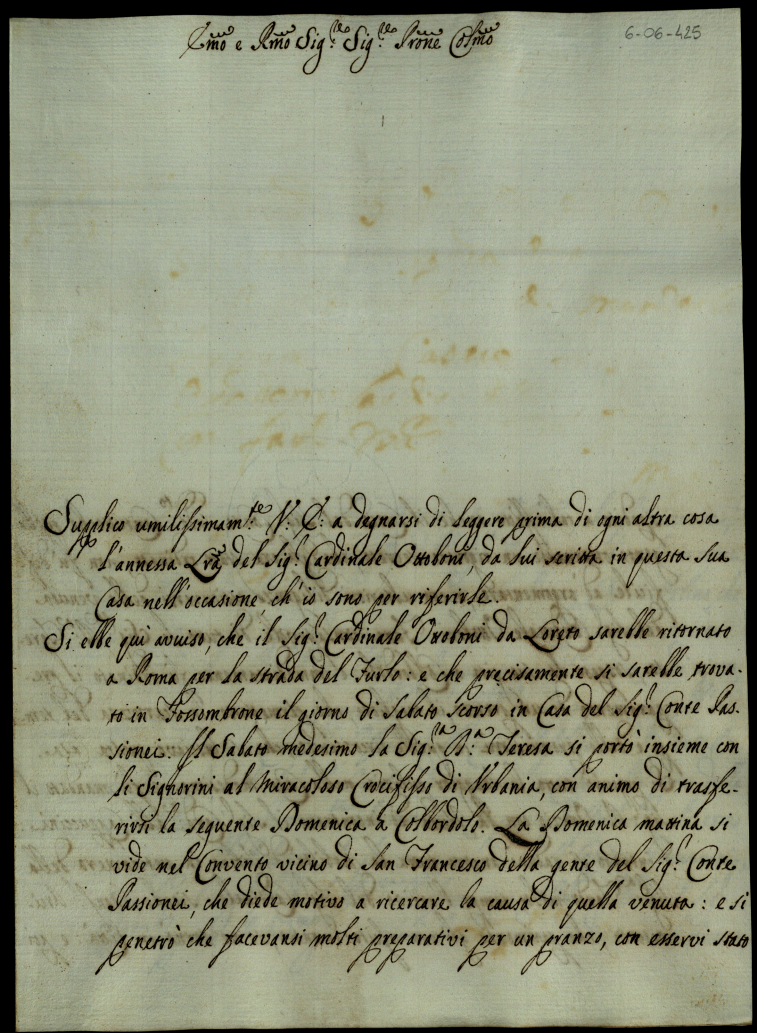 Emo e Rmo Sig.re Sig.re Prone Colmo
6-06-425
Supplico umilissimam.te V: E: a degnarsi di leggere prima di ogni altra cosa
l'annessa Lra del Sig.r Cardinale Ottoboni, da lui scritta in questa sua
Casa nell'occasione, ch'io sono per riferirle.
Si ebbe qui avviso, che il Sig.r Cardinale Ottoboni da Loreto sarebbe ritornato
a Roma per la strada del Furlo: e che precisamente si sarebbe trova-
to in Fossombrone il giorno di Sabato scorso in Casa del Sig.r Conte Pas-
sionei. Il Sabato medesimo la Sig.ra D.a Teresa si portò insieme con
li Signorini al Miracoloso Crocifisso di Urbania, con animo di trasfe-
rirsi la seguente Domenica a Colbordolo. La Domenica mattina si
vide nel Convento vicino di San Francesco della gente del Sig.r Conte
Passionei, che diede motivo a ricercare la causa di quella venuta: e si
penetrò che facevansi molti preparativi per un pranzo, con esservi stato